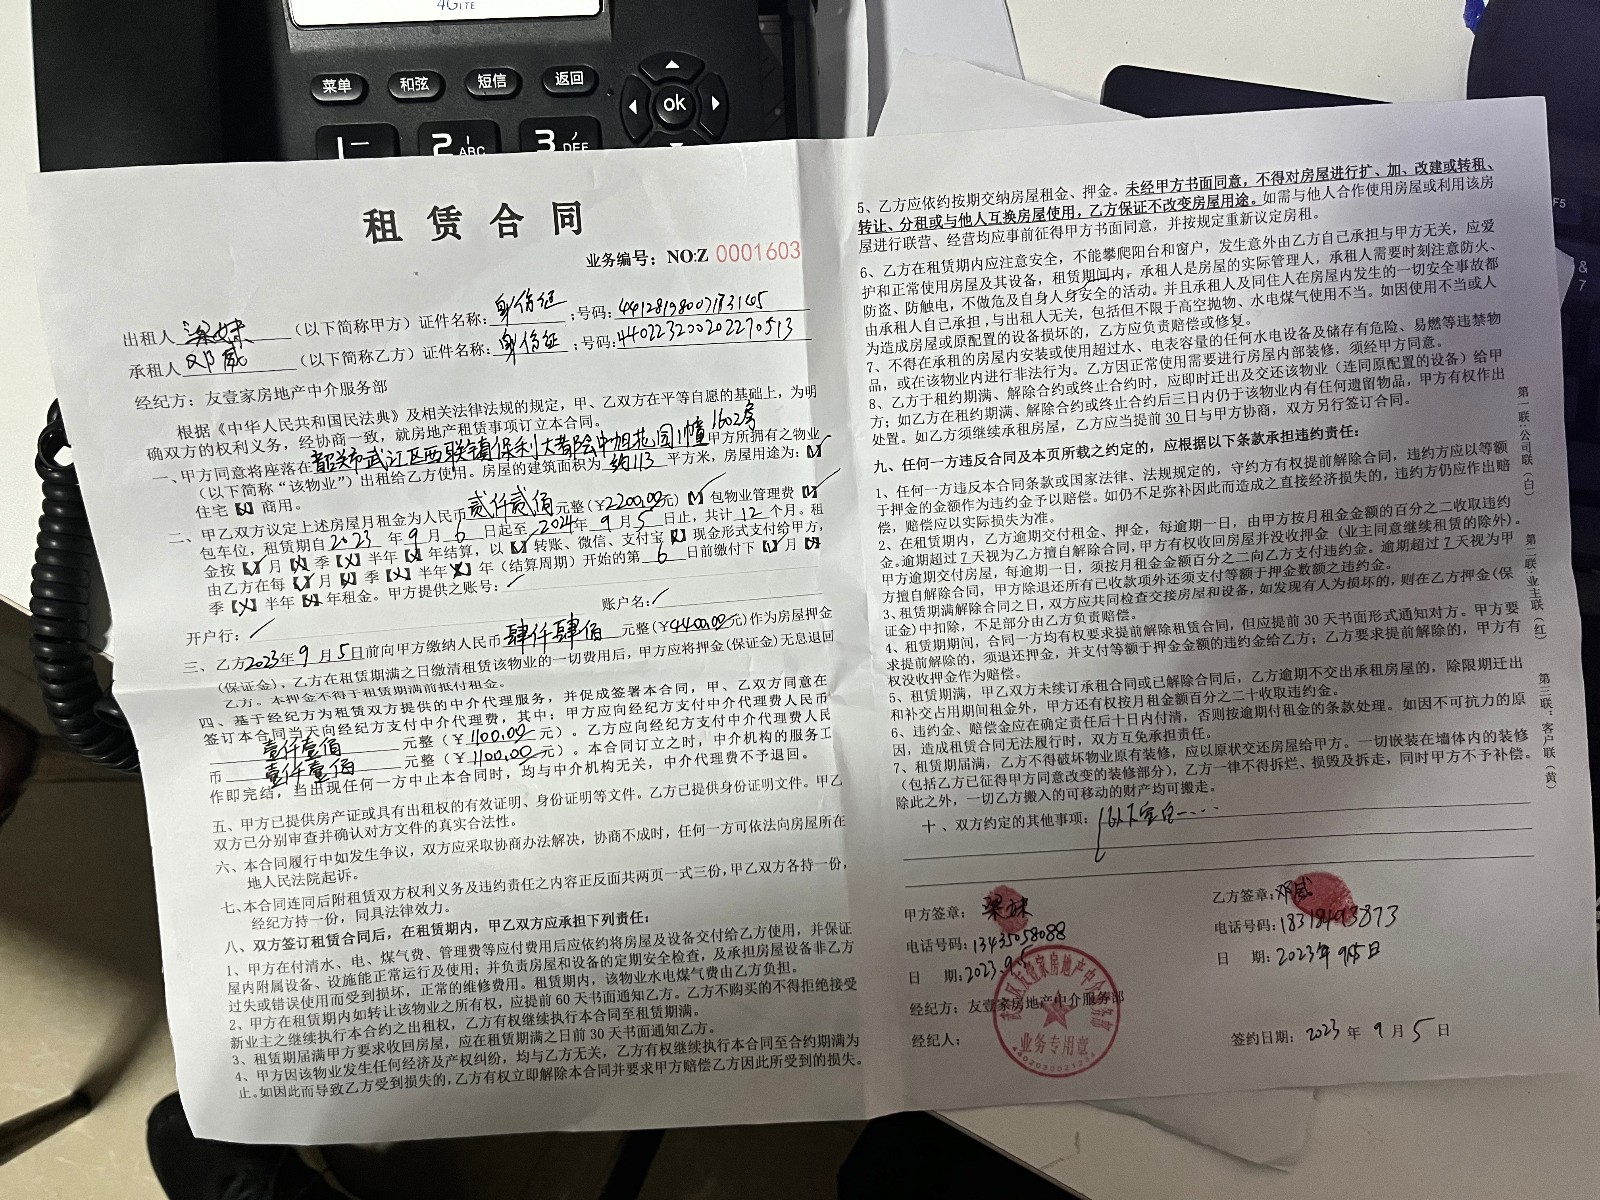 4G LTE
菜单 和弦 短信 返回
ok
1 一
2 ABC
3 DEF
F5
&
7
租赁合同
业务编号：NO:Z 0001603
出租人 梁妹 （以下简称甲方）证件名称：身份证；号码：
承租人 邓威 （以下简称乙方）证件名称：身份证；号码：440223200202270513
经纪方：友壹家房地产中介服务部
根据《中华人民共和国民法典》及相关法律法规的规定，甲、乙双方在平等自愿的基础上，为明
确双方的权利义务，经协商一致，就房地产租赁事项订立本合同。
一、甲方同意将座落在韶关市武江区西联镇保利大都会中旭花园1幢1602房甲方所拥有之物业
（以下简称“该物业”）出租给乙方使用。房屋的建筑面积为 约113 平方米，房屋用途为：【✓】
住宅【✗】商用。
二、甲乙双方议定上述房屋月租金为人民币 贰仟贰佰 元整（￥2200.00元）【✓】包物业管理费【✓】
包车位，租赁期自 2023 年 9 月 6 日起至 2024 年 9 月 5 日止，共计 12 个月。租
金按【✓】月【✗】季【✗】半年【✗】年结算，以【✓】转账、微信、支付宝【✗】现金形式支付给甲方，
由乙方在每【✓】月【✗】季【✗】半年【✗】年（结算周期）开始的第 6 日前缴付下【✓】月【✗】
季【✗】半年【✗】年租金。甲方提供之账号：/
开户行：/ 账户名：/
三、乙方2023年 9 月 5 日前向甲方缴纳人民币 肆仟肆佰 元整（￥4400.00元）作为房屋押金
（保证金），乙方在租赁期满之日缴清租赁该物业的一切费用后，甲方应将押金（保证金）无息退回
乙方。本押金不得于租赁期满前抵付租金。
四、基于经纪方为租赁双方提供的中介代理服务，并促成签署本合同，甲、乙双方同意在
签订本合同当天向经纪方支付中介代理费，其中：甲方应向经纪方支付中介代理费人民币
壹仟壹佰 元整（￥1100.00元）。乙方应向经纪方支付中介代理费人民
币 壹仟壹佰 元整（￥1100.00元）。本合同订立之时，中介机构的服务工
作即完结，当出现任何一方中止本合同时，均与中介机构无关，中介代理费不予退回。
五、甲方已提供房产证或具有出租权的有效证明、身份证明等文件。乙方已提供身份证明文件。甲乙
双方已分别审查并确认对方文件的真实合法性。
六、本合同履行中如发生争议，双方应采取协商办法解决，协商不成时，任何一方可依法向房屋所在
地人民法院起诉。
七、本合同连同后附租赁双方权利义务及违约责任之内容正反面共两页一式三份，甲乙双方各持一份，
经纪方持一份，同具法律效力。
八、双方签订租赁合同后，在租赁期内，甲乙双方应承担下列责任：
1、甲方在付清水、电、煤气费、管理费等应付费用后应依约将房屋及设备交付给乙方使用，并保证
屋内附属设备、设施能正常运行及使用；并负责房屋和设备的定期安全检查，及承担房屋设备非乙方
过失或错误使用而受到损坏，正常的维修费用。租赁期内，该物业水电煤气费由乙方负担。
2、甲方在租赁期内如转让该物业之所有权，应提前60天书面通知乙方。乙方不购买的不得拒绝接受
新业主之继续执行本合约之出租权，乙方有权继续执行本合同至租赁期满。
3、租赁期届满甲方要求收回房屋，应在租赁期满之日前30天书面通知乙方。
4、甲方因该物业发生任何经济及产权纠纷，均与乙方无关，乙方有权继续执行本合同至合约期满为
止。如因此而导致乙方受到损失的，乙方有权立即解除本合同并要求甲方赔偿乙方因此所受到的损失。
5、乙方应依约按期交纳房屋租金、押金。未经甲方书面同意，不得对房屋进行扩、加、改建或转租、
转让、分租或与他人互换房屋使用，乙方保证不改变房屋用途。如需与他人合作使用房屋或利用该房
屋进行联营、经营均应事前征得甲方书面同意，并按规定重新议定房租。
6、乙方在租赁期内应注意安全，不能攀爬阳台和窗户，发生意外由乙方自己承担与甲方无关，应爱
护和正常使用房屋及其设备，租赁期间内，承租人是房屋的实际管理人，承租人需要时刻注意防火、
防盗、防触电，不做危及自身人身安全的活动。并且承租人及同住人在房屋内发生的一切安全事故都
由承租人自己承担，与出租人无关，包括但不限于高空抛物、水电煤气使用不当。如因使用不当或人
为造成房屋或原配置的设备损坏的，乙方应负责赔偿或修复。
7、不得在承租的房屋内安装或使用超过水、电表容量的任何水电设备及储存有危险、易燃等违禁物
品，或在该物业内进行非法行为。乙方因正常使用需要进行房屋内部装修，须经甲方同意。
8、乙方于租约期满、解除合约或终止合约时，应即时迁出及交还该物业（连同原配置的设备）给甲
方；如乙方在租约期满、解除合约或终止合约后三日内仍于该物业内有任何遗留物品，甲方有权作出
处置。如乙方须继续承租房屋，乙方应当提前30日与甲方协商，双方另行签订合同。
九、任何一方违反合同及本页所载之约定的，应根据以下条款承担违约责任：
1、任何一方违反本合同条款或国家法律、法规规定的，守约方有权提前解除合同，违约方应以等额
于押金的金额作为违约金予以赔偿。如仍不足弥补因此而造成之直接经济损失的，违约方仍应作出赔
偿，赔偿应以实际损失为准。
2、在租赁期内，乙方逾期交付租金、押金，每逾期一日，由甲方按月租金金额的百分之二收取违约
金。逾期超过7天视为乙方擅自解除合同，甲方有权收回房屋并没收押金（业主同意继续租赁的除外）。
甲方逾期交付房屋，每逾期一日，须按月租金金额百分之二向乙方支付违约金。逾期超过7天视为甲
方擅自解除合同，甲方除退还所有已收款项外还须支付等额于押金数额之违约金。
3、租赁期满解除合同之日，双方应共同检查交接房屋和设备，如发现有人为损坏的，则在乙方押金（保
证金）中扣除，不足部分由乙方负责赔偿。
4、租赁期期间，合同一方均有权要求提前解除租赁合同，但应提前30天书面形式通知对方。甲方要
求提前解除的，须退还押金，并支付等额于押金金额的违约金给乙方；乙方要求提前解除的，甲方有
权没收押金作为赔偿。
5、租赁期满，甲乙双方未续订承租合同或已解除合同后，乙方逾期不交出承租房屋的，除限期迁出
和补交占用期间租金外，甲方还有权按月租金额百分之二十收取违约金。
6、违约金、赔偿金应在确定责任后十日内付清，否则按逾期付租金的条款处理。如因不可抗力的原
因，造成租赁合同无法履行时，双方互免承担责任。
7、租赁届满，乙方不得破坏物业原有装修，应以原状交还房屋给甲方。一切嵌装在墙体内的装修
（包括乙方已征得甲方同意改变的装修部分），乙方一律不得拆烂、损毁及拆走，同时甲方不予补偿。
除此之外，一切乙方搬入的可移动的财产均可搬走。
十、双方约定的其他事项：以下空白
甲方签章：梁妹
电话号码：13435058088
日 期：2023.9.5
经纪方：友壹家房地产中介服务部
经纪人：
乙方签章：邓威
电话号码：18318493873
日 期：2023年9月5日
签约日期：2023 年 9 月 5 日
武江区友壹家房地产中介服务部
业务专用章
第一联：公司联（白）
第二联：业主联（红）
第三联：客户联（黄）